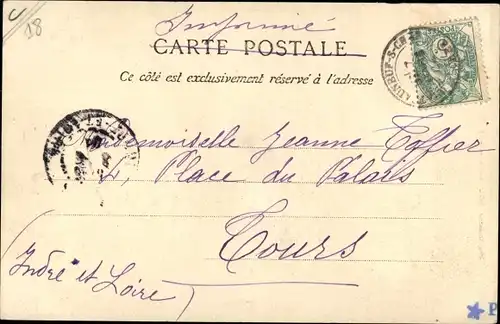 18
Imprimé
CARTE POSTALE
Ce côté est exclusivement réservé à l'adresse
Mademoiselle Jeanne
4, Place du Palais
Tours
(Indre et Loire)